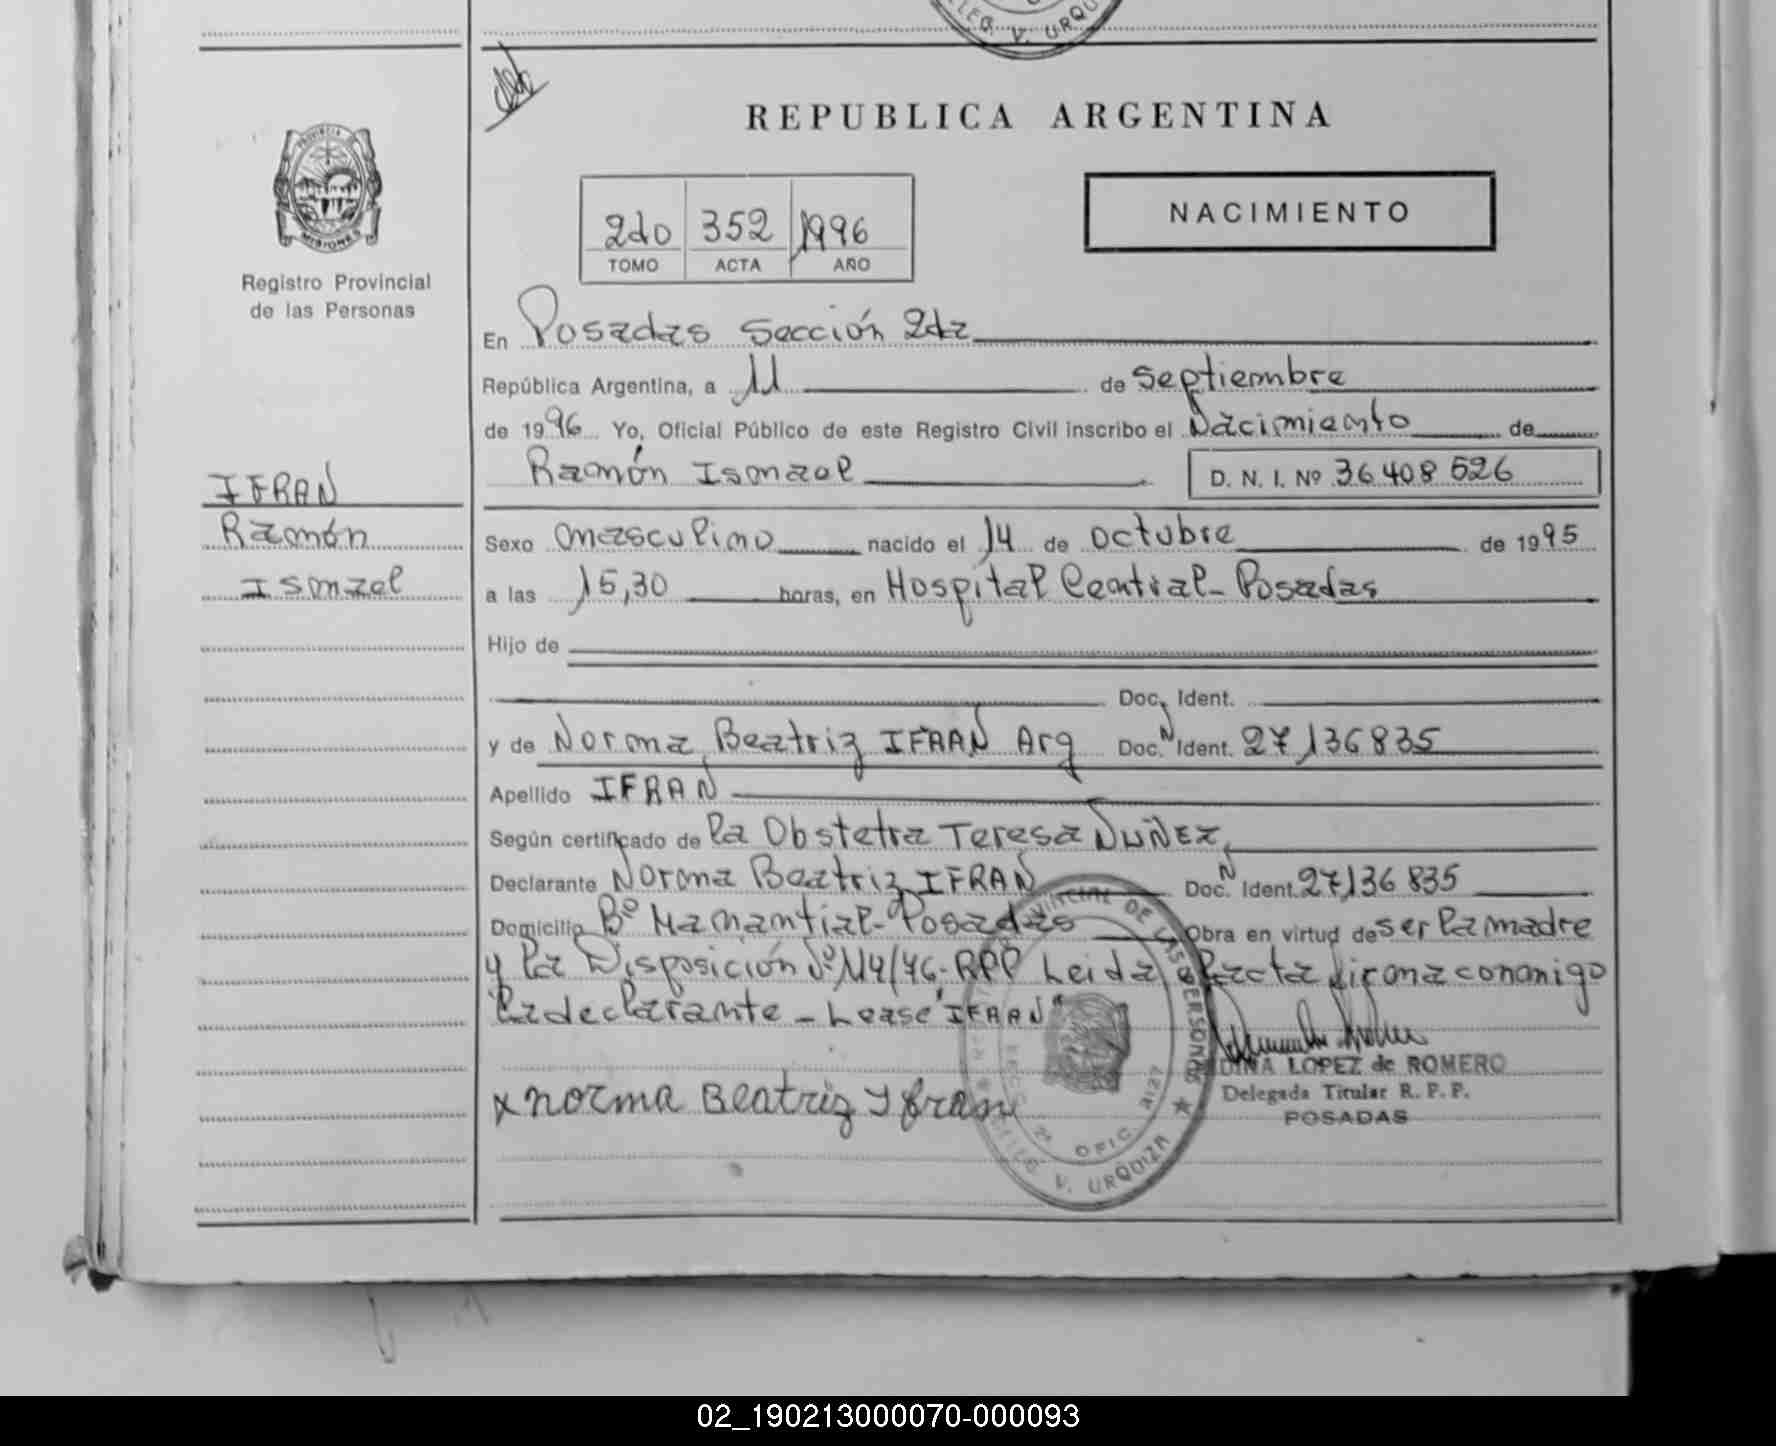 LEG. V. URQU
REPUBLICA ARGENTINA
PROVINCIA
MISIONES
Registro Provincial
de las Personas
2do 352 1996
TOMO ACTA AÑO
NACIMIENTO
En Posadas Sección 2da
República Argentina, a 11 de Septiembre
de 1996 Yo, Oficial Público de este Registro Civil inscribo el Nacimiento de
Ramón Ismael D. N. I. Nº 36 408 526
IFRAN
Ramón
Ismael
Sexo masculino nacido el 14 de octubre de 1995
a las 15,30 horas, en Hospital Central - Posadas
Hijo de
Doc. Ident.
y de Norma Beatriz IFRAN Arg Doc. N Ident. 27136835
Apellido IFRAN
Según certificado de la Obstetra Teresa NUÑEZ,
Declarante Norma Beatriz IFRAN Doc. N Ident. 27136 835
Domicilio Bº Manantial - Posadas Obra en virtud de ser la madre
y la Disposición Nº 114/96 - RPP Leida el acta firma conmigo
la declarante - Lease "IFRAN"
x norma Beatriz Yfran
DE LAS PERSONAS
2ª OFIC.
V. URQUIZA
DINA LOPEZ de ROMERO
Delegada Titular R. P. P.
POSADAS
02_190213000070-000093